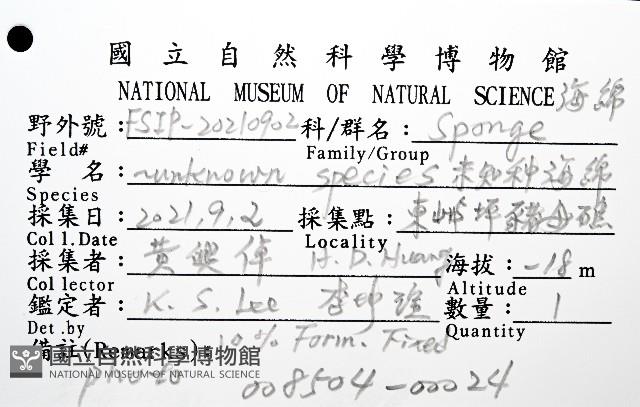 國立自然科學博物館
NATIONAL MUSEUM OF NATURAL SCIENCE 海綿
野外號:FSIP-20210902 科/群名:Sponge
Field# Family/Group
學 名:~unknown species 未知种海綿
Species
採集日:2021,9,2 採集點:東嶼坪豬母礁
Col l.Date Locality
採集者:黃興倬 H. D. Huang 海拔:-18 m
Col lector Altitude
鑑定者:K. S. Lee 李坤瑄 數量:1
Det .by Quantity
備註(Remarks) 10% Form. Fixed
國立自然科學博物館
NATIONAL MUSEUM OF NATURAL SCIENCE
photo 008504-00024